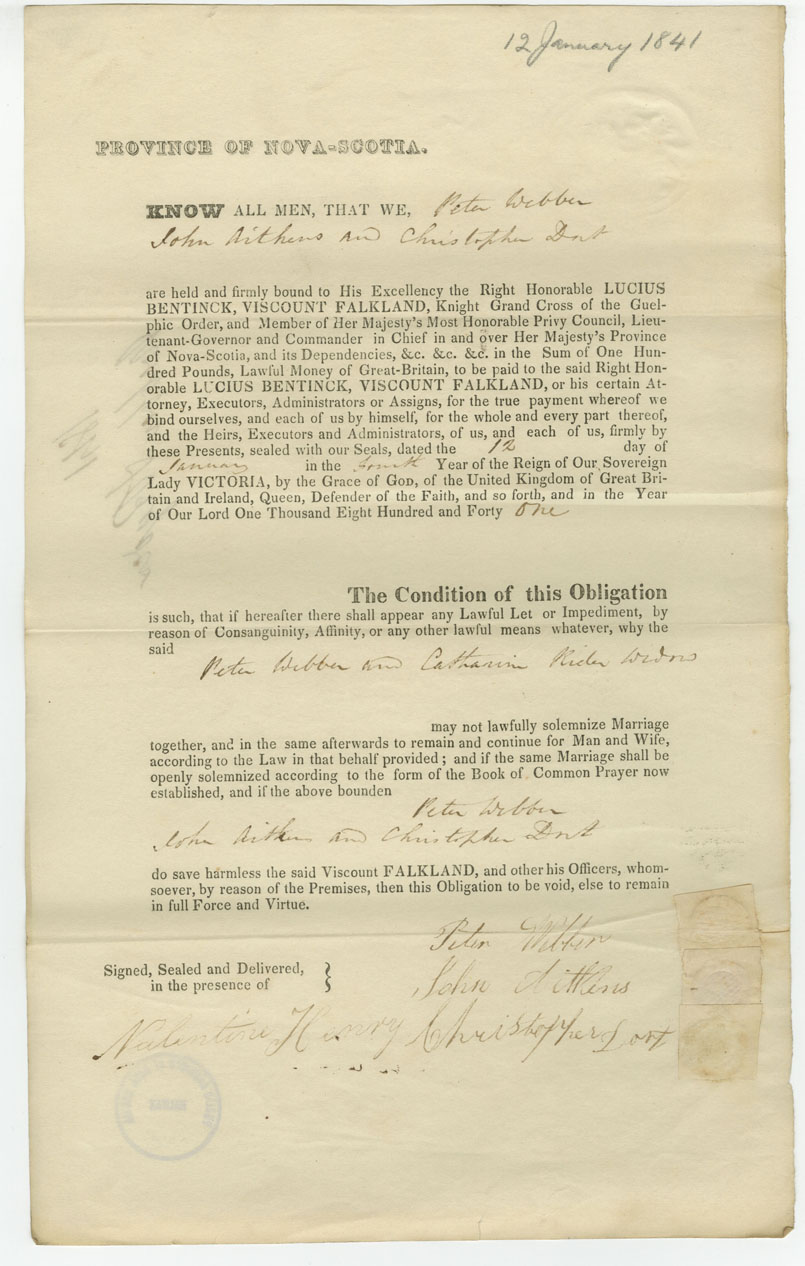 12 January 1841
PROVINCE OF NOVA-SCOTIA.
KNOW ALL MEN, THAT WE, Peter Webber
John Aitkens and Christopher Dort
are held and firmly bound to His Excellency the Right Honorable LUCIUS
BENTINCK, VISCOUNT FALKLAND, Knight Grand Cross of the Guel-
phic Order, and Member of Her Majesty's Most Honorable Privy Council, Lieu-
tenant-Governor and Commander in Chief in and over Her Majesty's Province
of Nova-Scotia, and its Dependencies, &c. &c. &c. in the Sum of One Hun-
dred Pounds, Lawful Money of Great-Britain, to be paid to the said Right Hon-
orable LUCIUS BENTINCK, VISCOUNT FALKLAND, or his certain At-
torney, Executors, Administrators or Assigns, for the true payment whereof we
bind ourselves, and each of us by himself, for the whole and every part thereof,
and the Heirs, Executors and Administrators, of us, and each of us, firmly by
these Presents, sealed with our Seals, dated the 12 day of
January in the fourth Year of the Reign of Our Sovereign
Lady VICTORIA, by the Grace of GOD, of the United Kingdom of Great Bri-
tain and Ireland, Queen, Defender of the Faith, and so forth, and in the Year
of Our Lord One Thousand Eight Hundred and Forty One
The Condition of this Obligation
is such, that if hereafter there shall appear any Lawful Let or Impediment, by
reason of Consanguinity, Affinity, or any other lawful means whatever, why the
said
Peter Webber and Catharine Rider Widow
may not lawfully solemnize Marriage
together, and in the same afterwards to remain and continue for Man and Wife,
according to the Law in that behalf provided; and if the same Marriage shall be
openly solemnized according to the form of the Book of Common Prayer now
established, and if the above bounden
Peter Webber
John Aitkens and Christopher Dort
do save harmless the said Viscount FALKLAND, and other his Officers, whom-
soever, by reason of the Premises, then this Obligation to be void, else to remain
in full Force and Virtue.
Peter Webber
Signed, Sealed and Delivered,
in the presence of
John Aitkens
Valentine Henry Christopher Dort